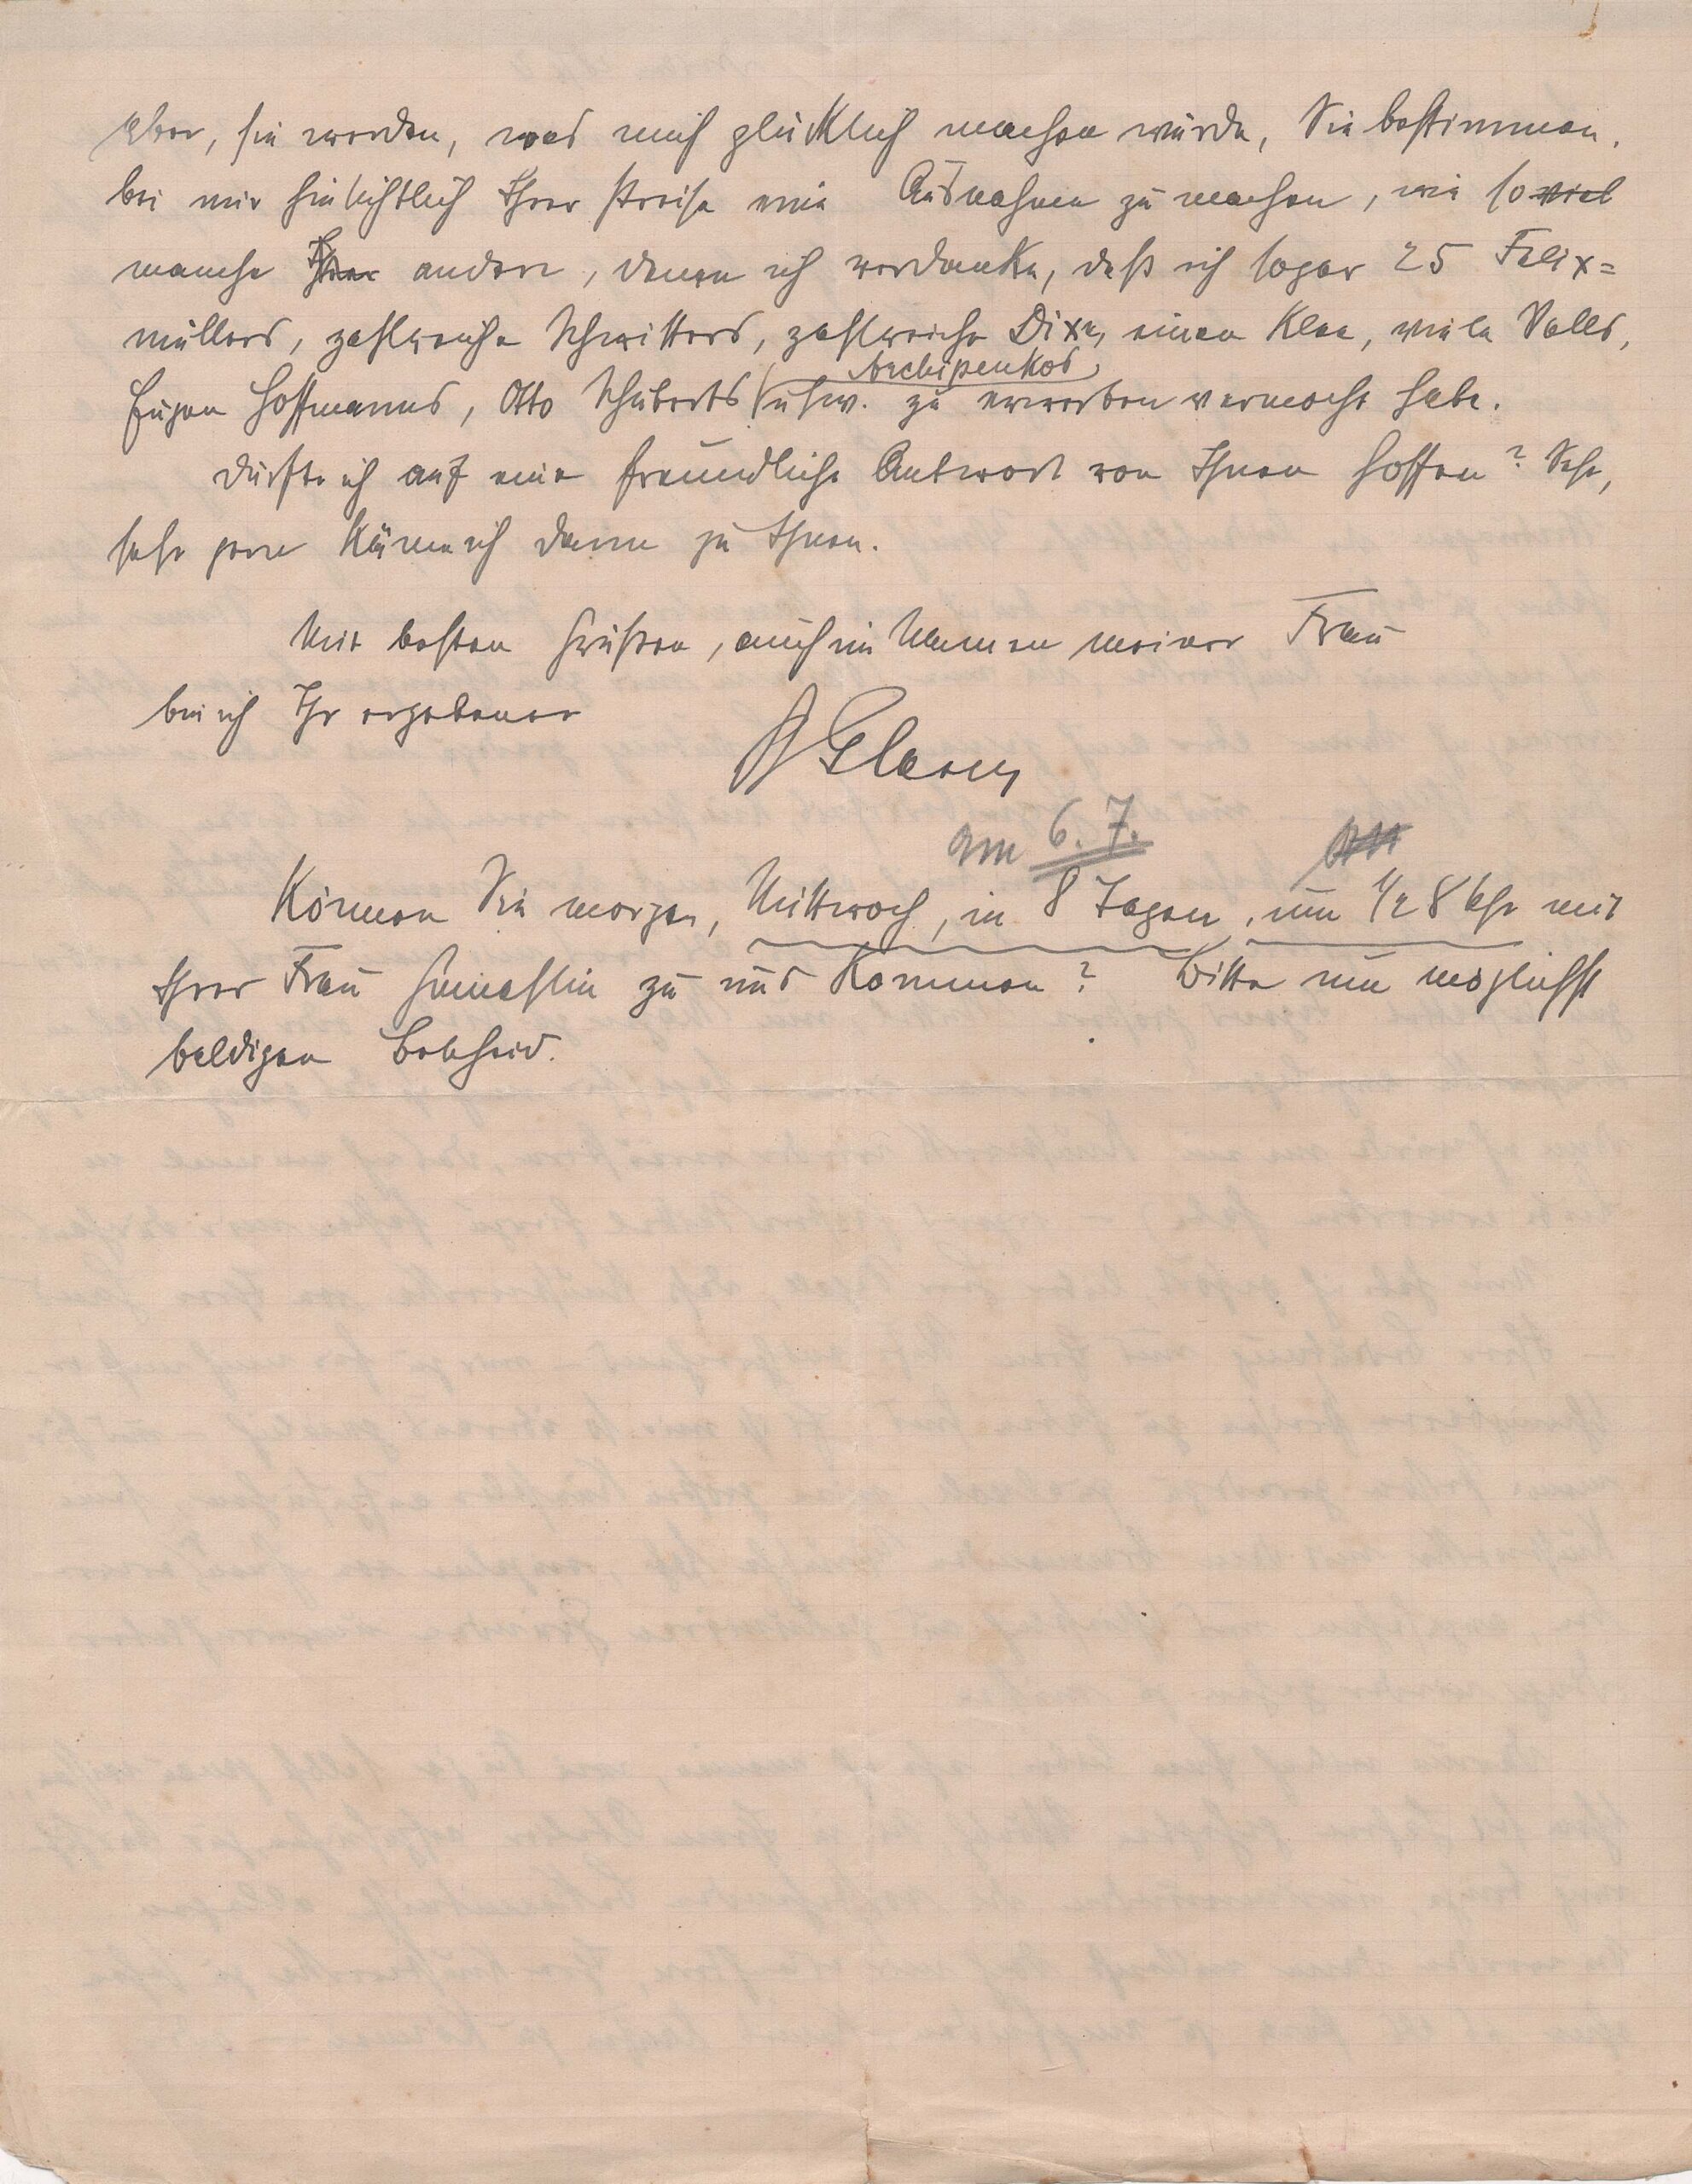 aber, sie werden, was mich glücklich machen würde, Sie bestimmen,
bei mir hinsichtlich Ihrer Preise eine Ausnahme zu machen, wie so viel
manche andere, denen ich verdanke, daß ich sogar 25 Felix=
müllers, zahlreiche Schwitters, zahlreiche Dixe, einen Klee, viele Volls,
Archipenkos,
Eugen Hoffmanns, Otto Schuberts usw. zu erwerben vermocht habe.
Dürfte ich auf eine freundliche Antwort von Ihnen hoffen? Sehr,
sehr gern käme ich dann zu Ihnen.
Mit besten Grüßen, auch im Namen meiner Frau
bin ich Ihr ergebener
Glaser
am 6. 7.
Können Sie morgen, Mittwoch, in 8 Tagen, um 1/2 8 Uhr mit
Ihrer Frau Gemahlin zu uns kommen? Bitte um möglichst
baldigen Bescheid.